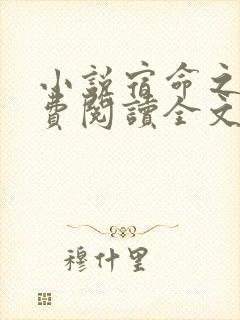 小説宿命之
費閱讀全文
穆什里